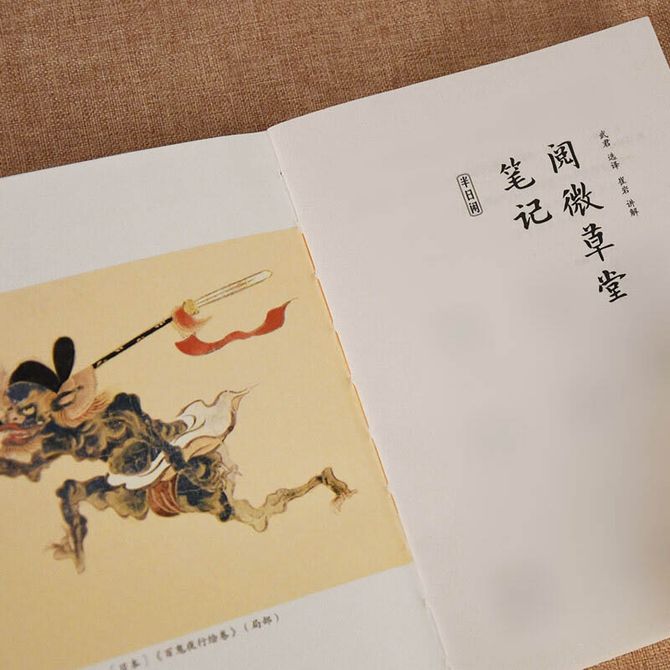 武君 选译 崔岩 讲解
阅微草堂
笔记
半日闲
［日本］《百鬼夜行绘卷》（局部）